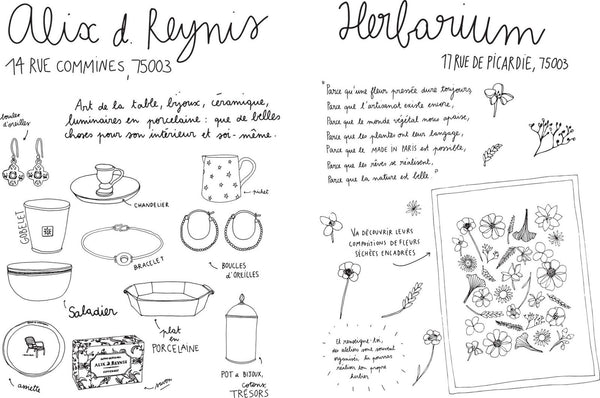 Alix d. Reynis
14 RUE COMMINES, 75003
Art de la table, bijoux, céramique,
luminaires en porcelaine : que de belles
choses pour son intérieur et soi-même.
boucles
d'oreilles
CHANDELIER
pichet
GOBELET
BRACELET
BOUCLES
D'OREILLES
Saladier
plat
en
PORCELAINE
assiette
ALIX D. REYNIS
savon
POT à BIJOUX,
cotons,
TRÉSORS
Herbarium
17 RUE DE PICARDIE, 75003
"Parce qu'une fleur pressée dure toujours,
Parce que l'artisanat existe encore,
Parce que le monde végétal nous apaise,
Parce que les plantes ont leur langage,
Parce que le MADE IN PARIS est possible,
Parce que les rêves se réalisent,
Parce que la nature est belle"
VA DÉCOUVRIR LEURS
COMPOSITIONS DE FLEURS
SÉCHÉES ENCADRÉES
Et renseigne-toi,
des ateliers sont souvent
organisés, tu pourras
réaliser ton propre
herbier